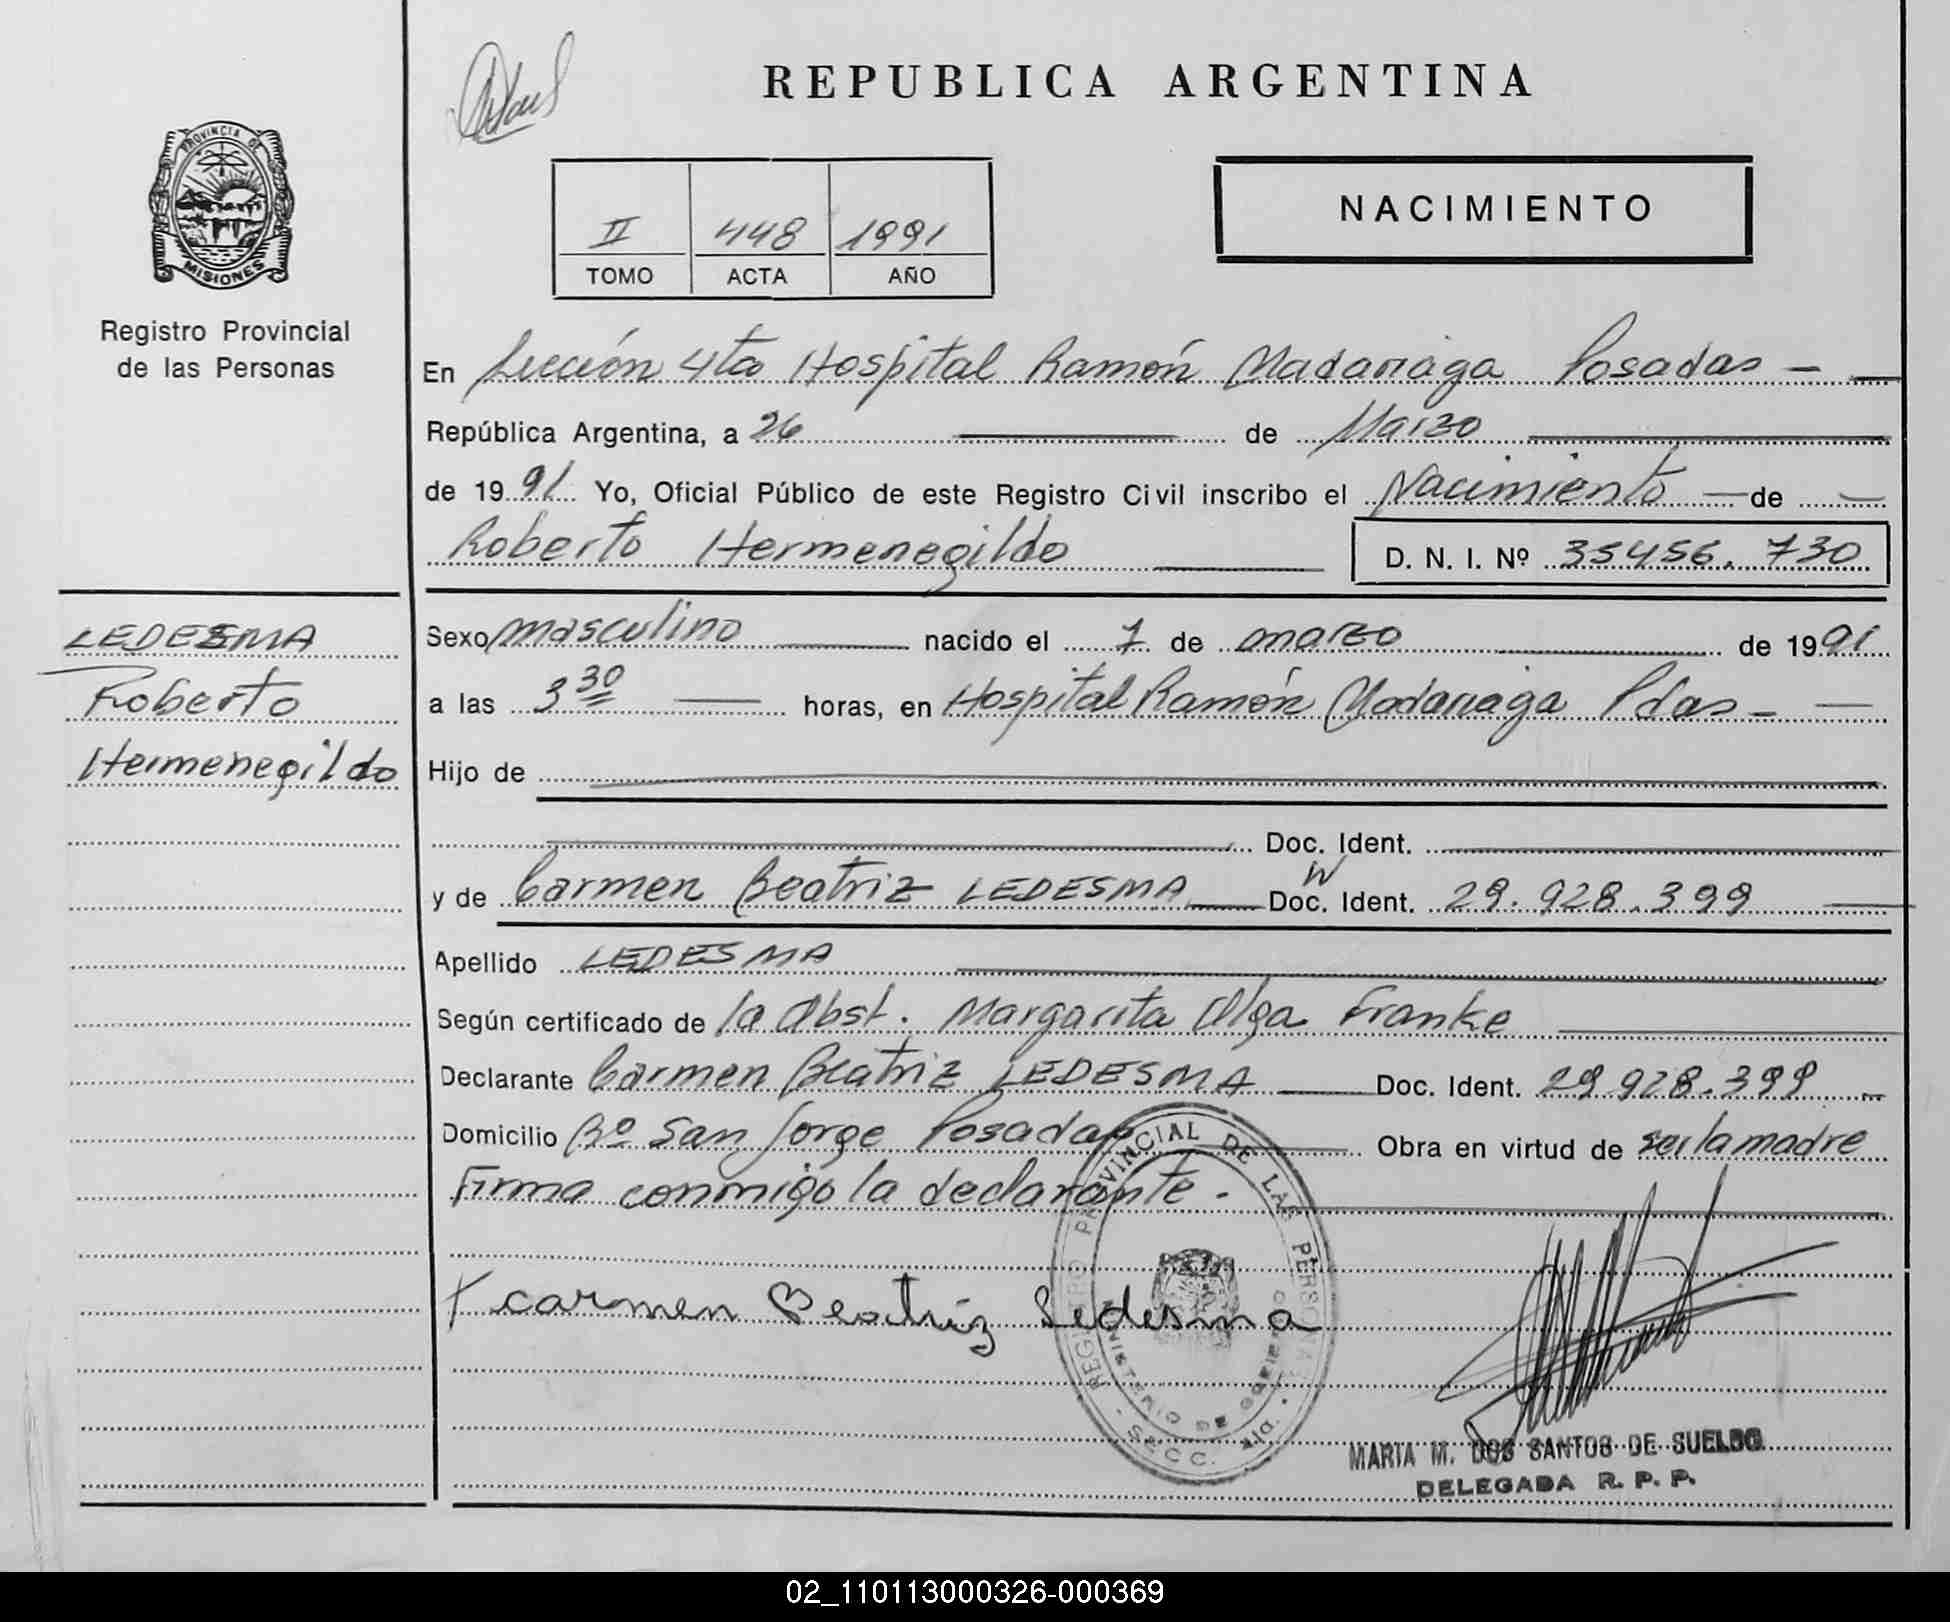 REPUBLICA ARGENTINA
PROVINCIA DE MISIONES
Registro Provincial
de las Personas
II 448 1991
TOMO ACTA AÑO
NACIMIENTO
En Sección 4ta Hospital Ramón Madariaga Posadas
República Argentina, a 26 de Marzo
de 1991 Yo, Oficial Público de este Registro Civil inscribo el Nacimiento de
Roberto Hermenegildo D. N. I. Nº 35456.730
LEDESMA
Roberto
Hermenegildo
Sexo masculino nacido el 7 de marzo de 1991
a las 3 30 horas, en Hospital Ramón Madariaga Pdas
Hijo de
Doc. Ident.
y de Carmen Beatriz LEDESMA Doc. Ident. 29.928.399
Apellido LEDESMA
Según certificado de la Obst. Margarita Olga Franke
Declarante Carmen Beatriz LEDESMA Doc. Ident. 29.928.399
Domicilio Bº San Jorge Posadas Obra en virtud de ser la madre
Firma conmigo la declarante.
Carmen Beatriz Ledesma
REGISTRO PROVINCIAL DE LAS PERSONAS
MINISTERIO DE GOBIERNO
MARIA M. DOS SANTOS DE SUELDO
DELEGADA R. P. P.
02_110113000326-000369